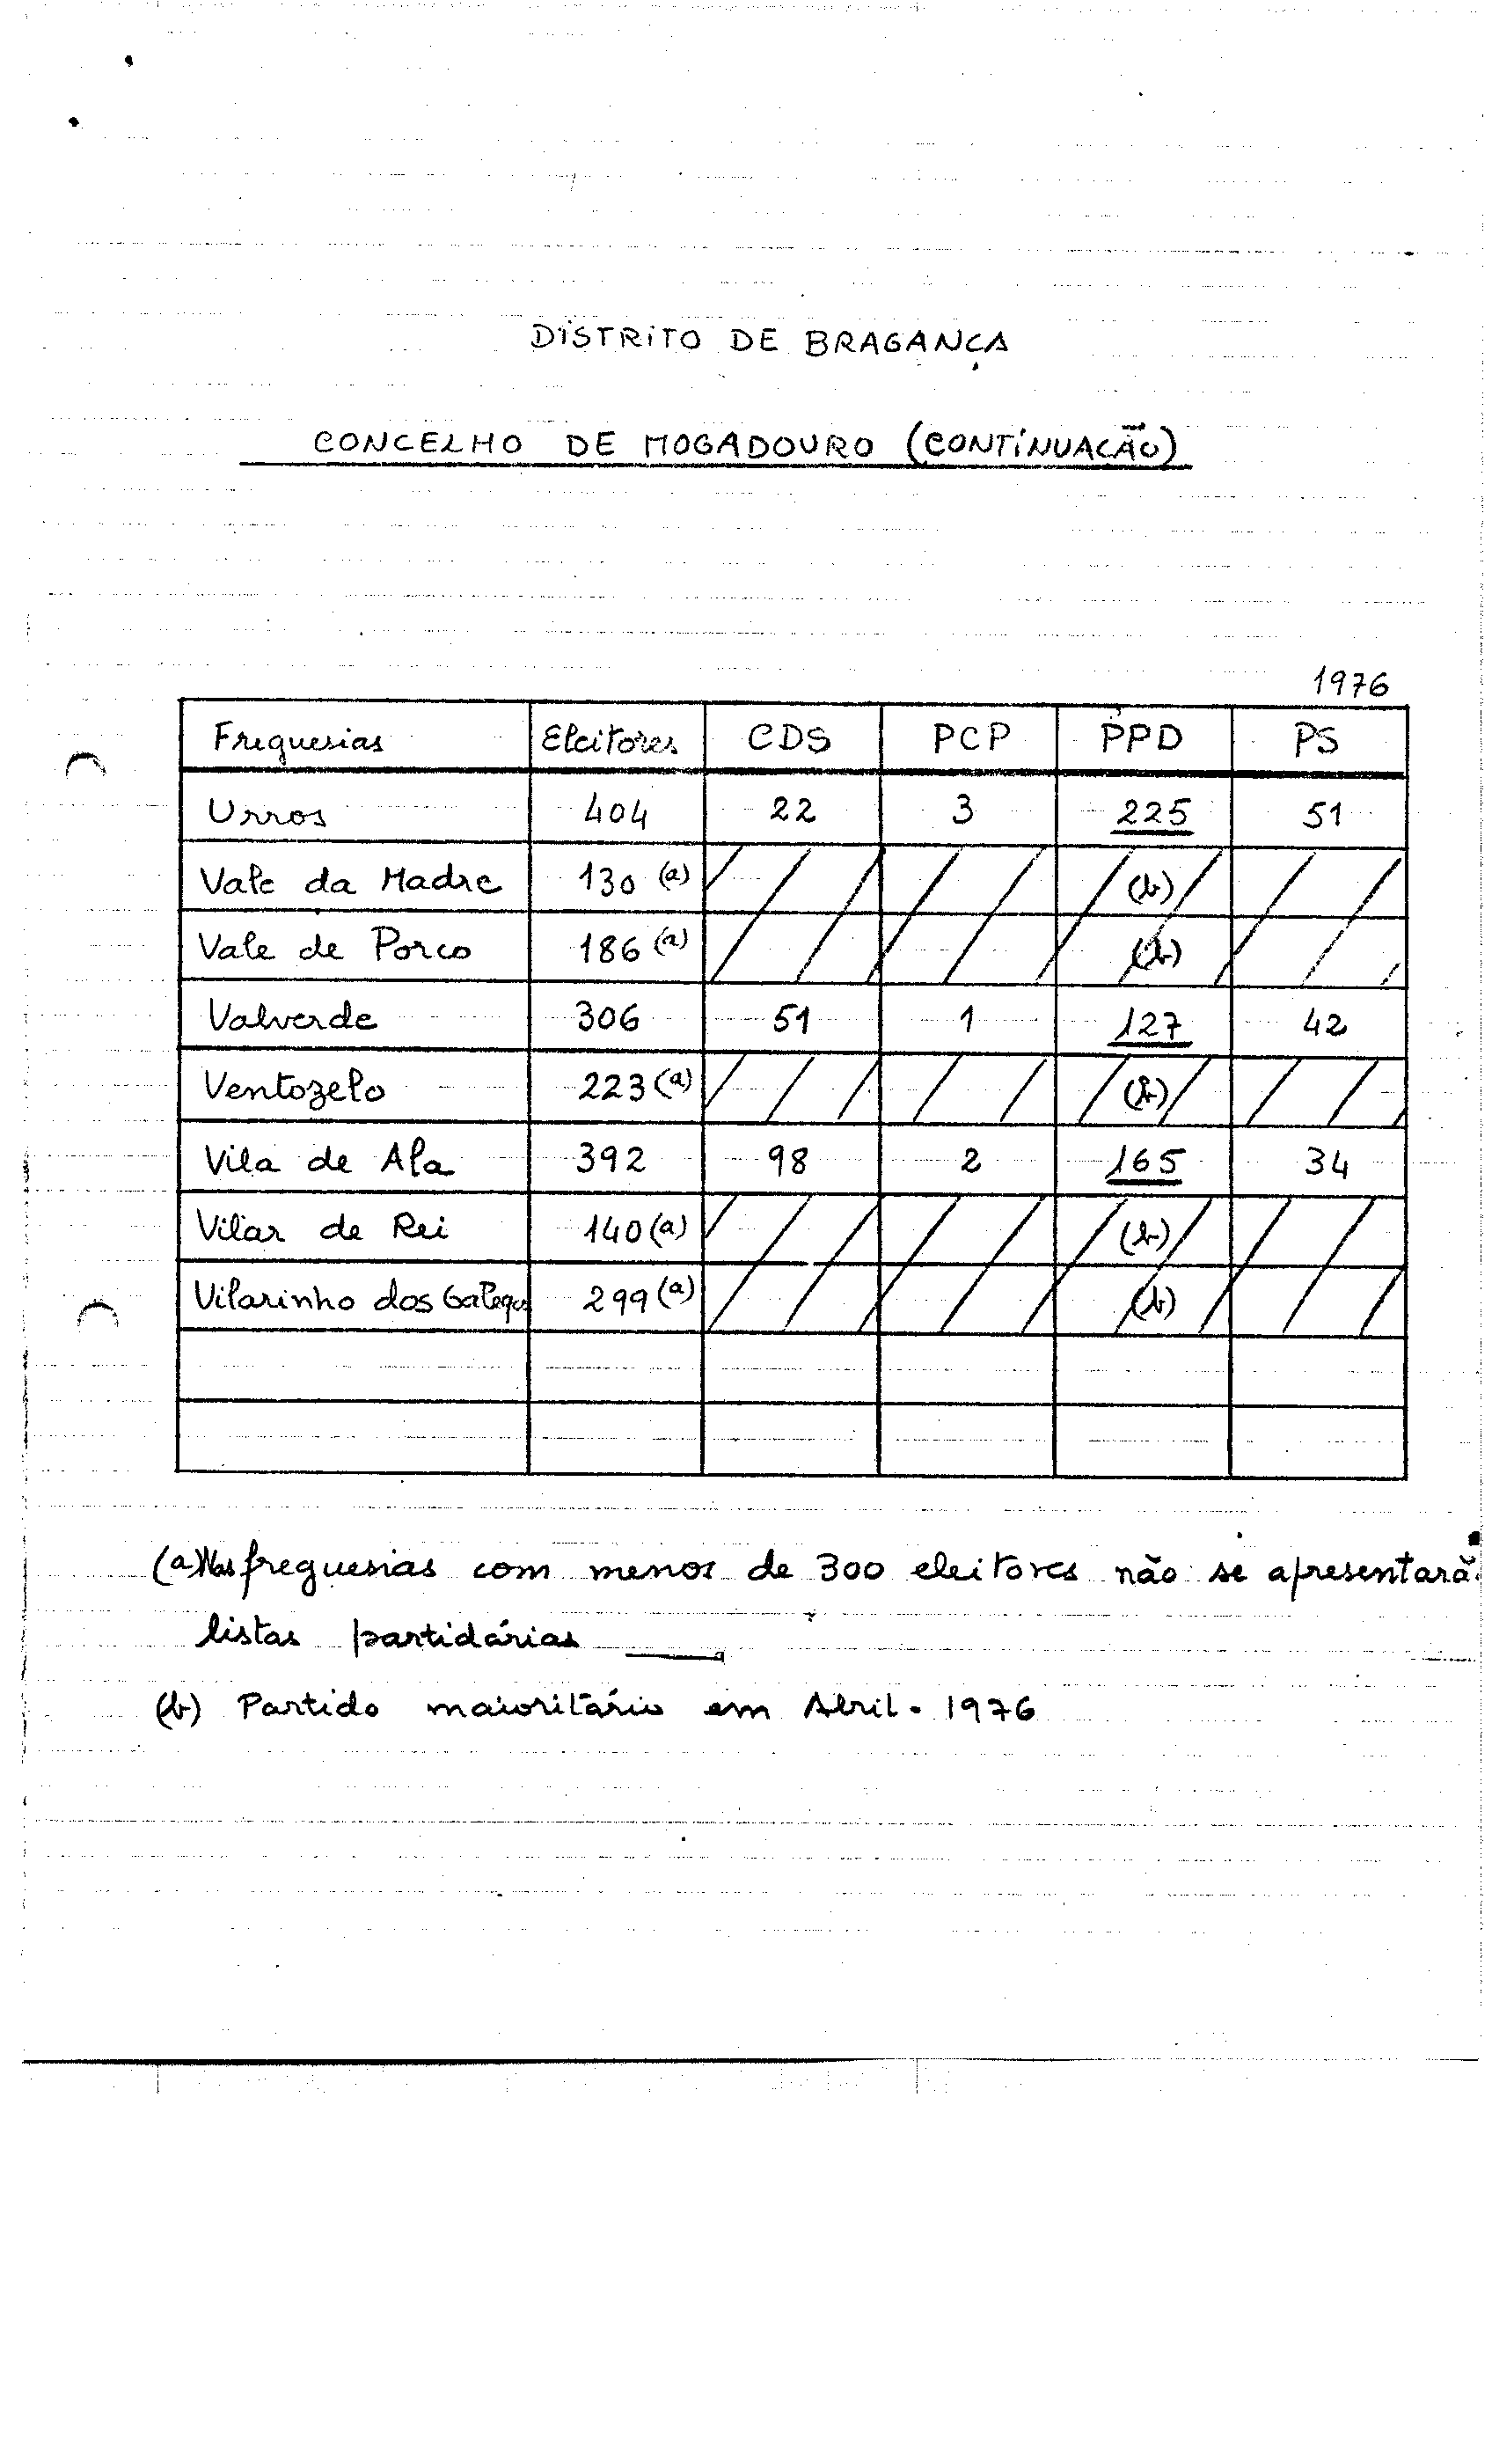 DISTRITO DE BRAGANÇA
CONCELHO DE MOGADOURO (CONTINUAÇÃO)
1976
Freguesias Eleitores CDS PCP PPD PS
Urros 404 22 3 225 51
Vale da Madre 130 (a) (b)
Vale de Porco 186 (a) (b)
Valverde 306 51 1 127 42
Ventozelo 223 (a) (b)
Vila de Ala 392 98 2 165 34
Vilar de Rei 140 (a) (b)
Vilarinho dos Galegos 299 (a) (b)
(a) Nas freguesias com menos de 300 eleitores não se apresentarã
listas partidárias
(b) Partido maioritário em Abril - 1976